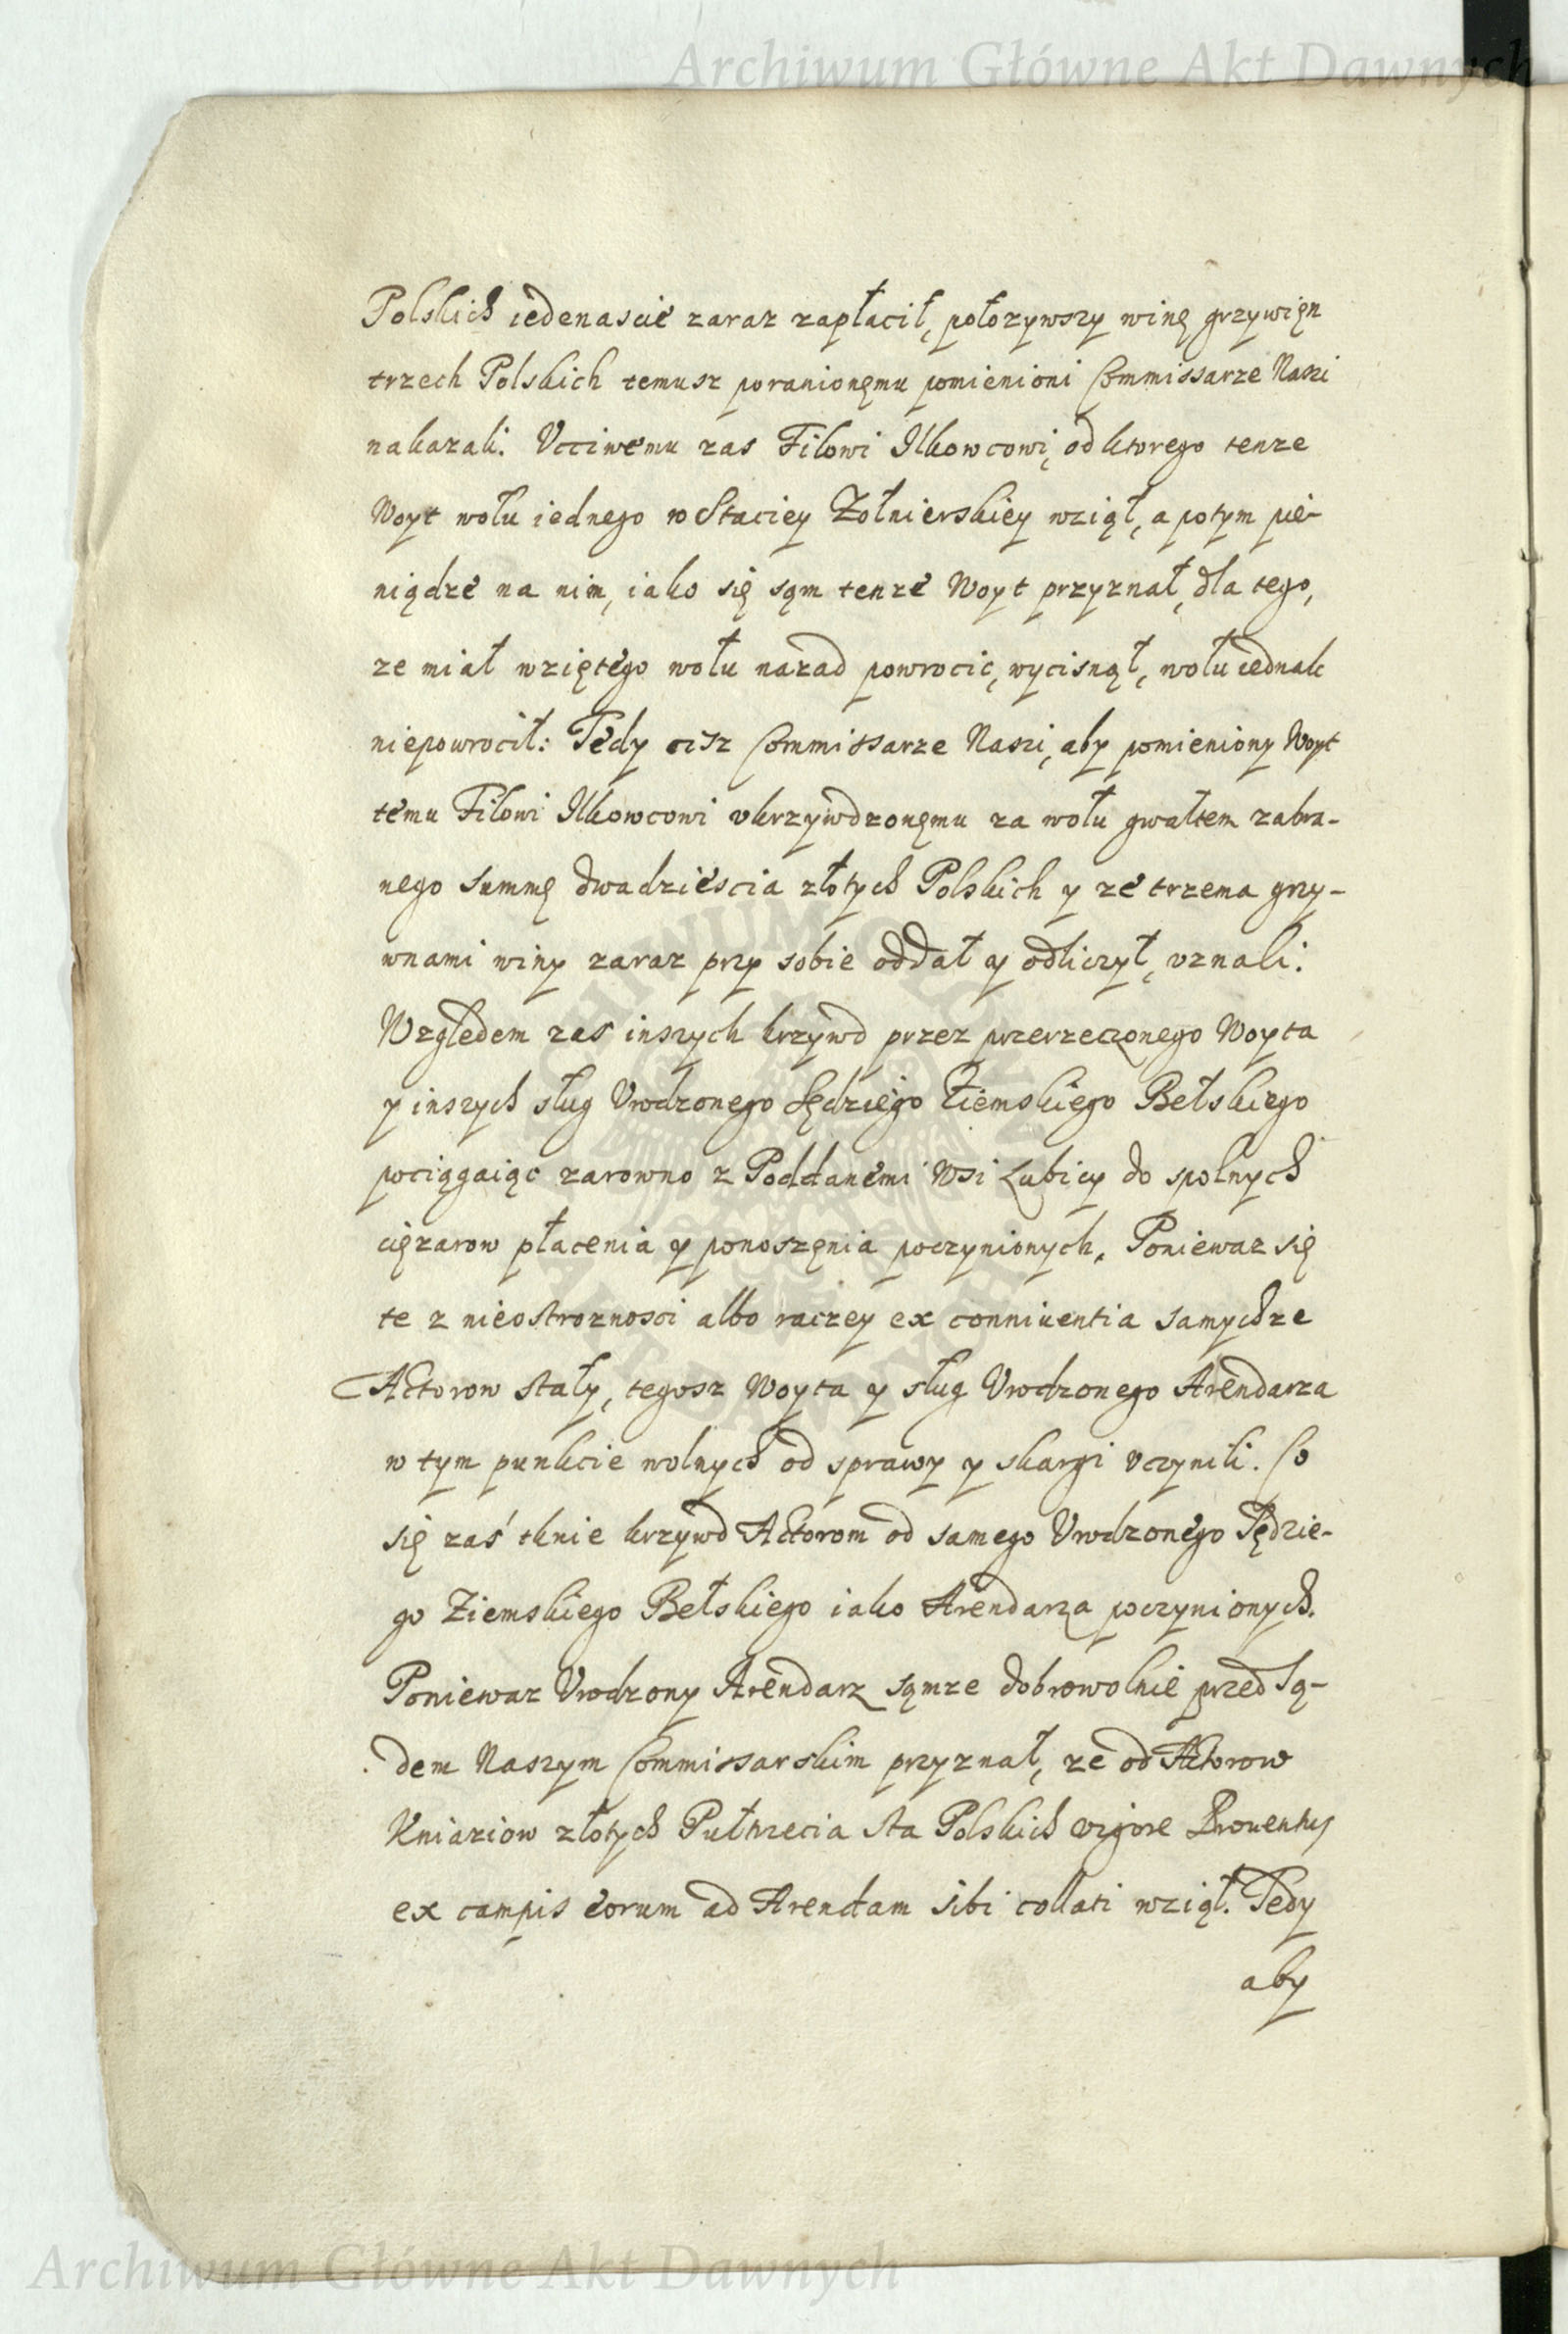 Archiwum Główne Akt Dawnych
Polskich iedenascie zaraz zapłacił, położywszy winę grzywięn
trzech Polskich temusz poranionęmu pomienioni Commissarze Naszi
nakazali. Vcciwemu zas Filowi Ilkowcowi, od ktorego tenze
Woyt wołu iednego w Staciey Zołnierskiey wziął, a potym pie-
niądze na nim, iako się sąm tenze Woyt przyznał, dla tego,
ze miał wziętego wołu nazad powrocic, wycisnął, wołu iednak
niepowrocił: Tedy cisz Commissarze Naszi, aby pomieniony Woyt
temu Filowi Ilkowcowi vkrzywdzonęmu za wołu gwałtem zabra-
nego summę dwadziescia złotych Polskich y ze trzema grzy-
wnami winy zaraz przy sobie oddał y odliczył, vznali.
Względem zas inszych krzywd przez przerzeczonego Woyta
y inszych sług Vrodzonego Sędziego Ziemskiego Bełskiego
pociągaiąc zarowno z Poddanemi Wsi Lubicy do spolnych
cięzarow płacenia y ponoszęnia poczynionych, Poniewaz się
te z nieostroznosci albo raczey ex conniuentia samychze
Actorow stały, tegosz Woyta y sług Vrodzonego Arendarza
w tym punkcie wolnych od sprawy y skargi vczynili. Co
się zaś tknie krzywd Actorom od samego Vrodzonego Sędzie-
go Ziemskiego Bełskiego iako Arendarza poczynionych.
Poniewaz Vrodzony Arendarz sąmze dobrowolnie przed Są-
dem Naszym Commissarskim przyznał, ze od Actorow
Kniaziow złotych Pułtrzecia sta Polskich vigore Prouentus
ex campis eorum ad Arendam sibi collati wziął. Tedy
aby
Archiwum Główne Akt Dawnych